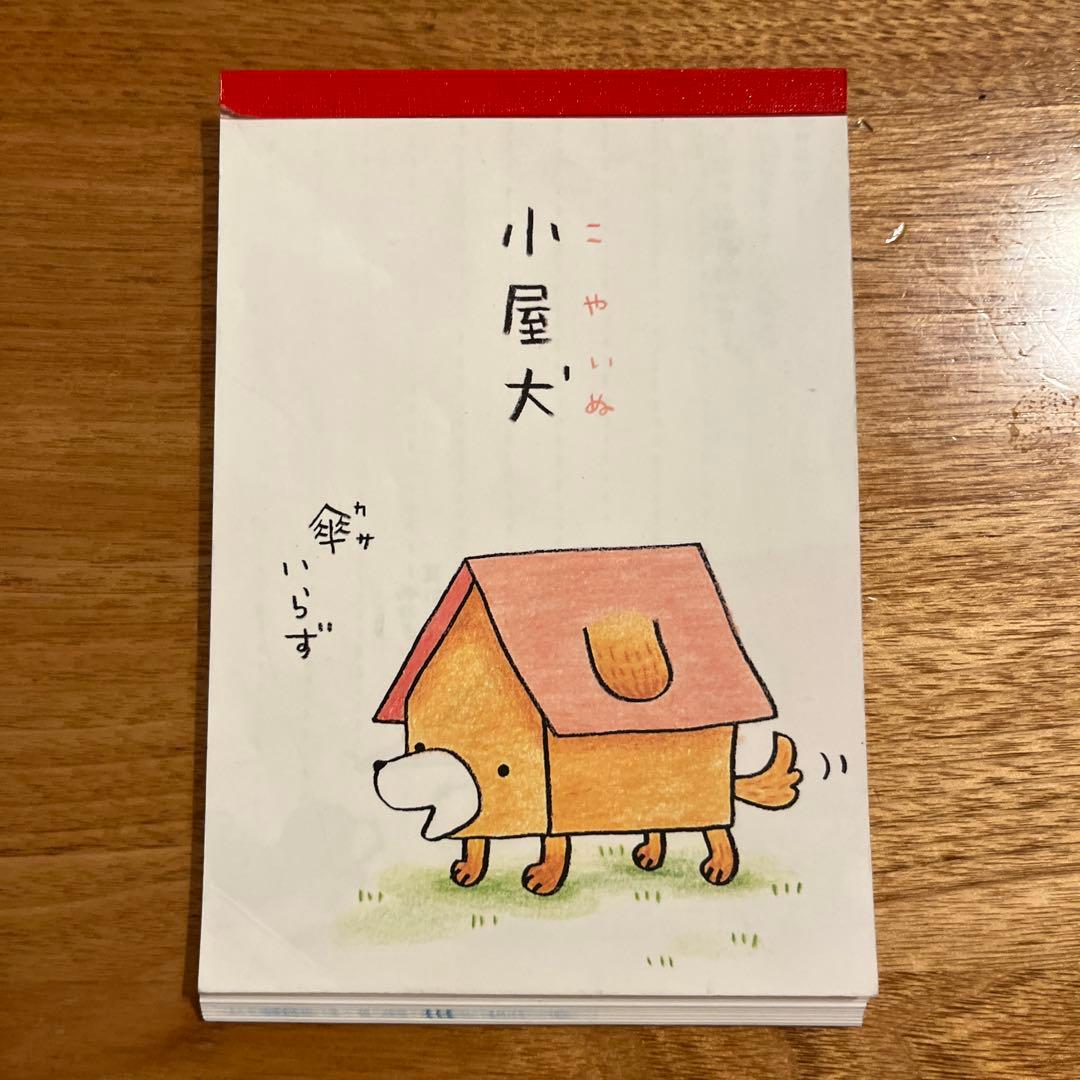 小屋犬
こやいぬ
傘
カサ
いらず